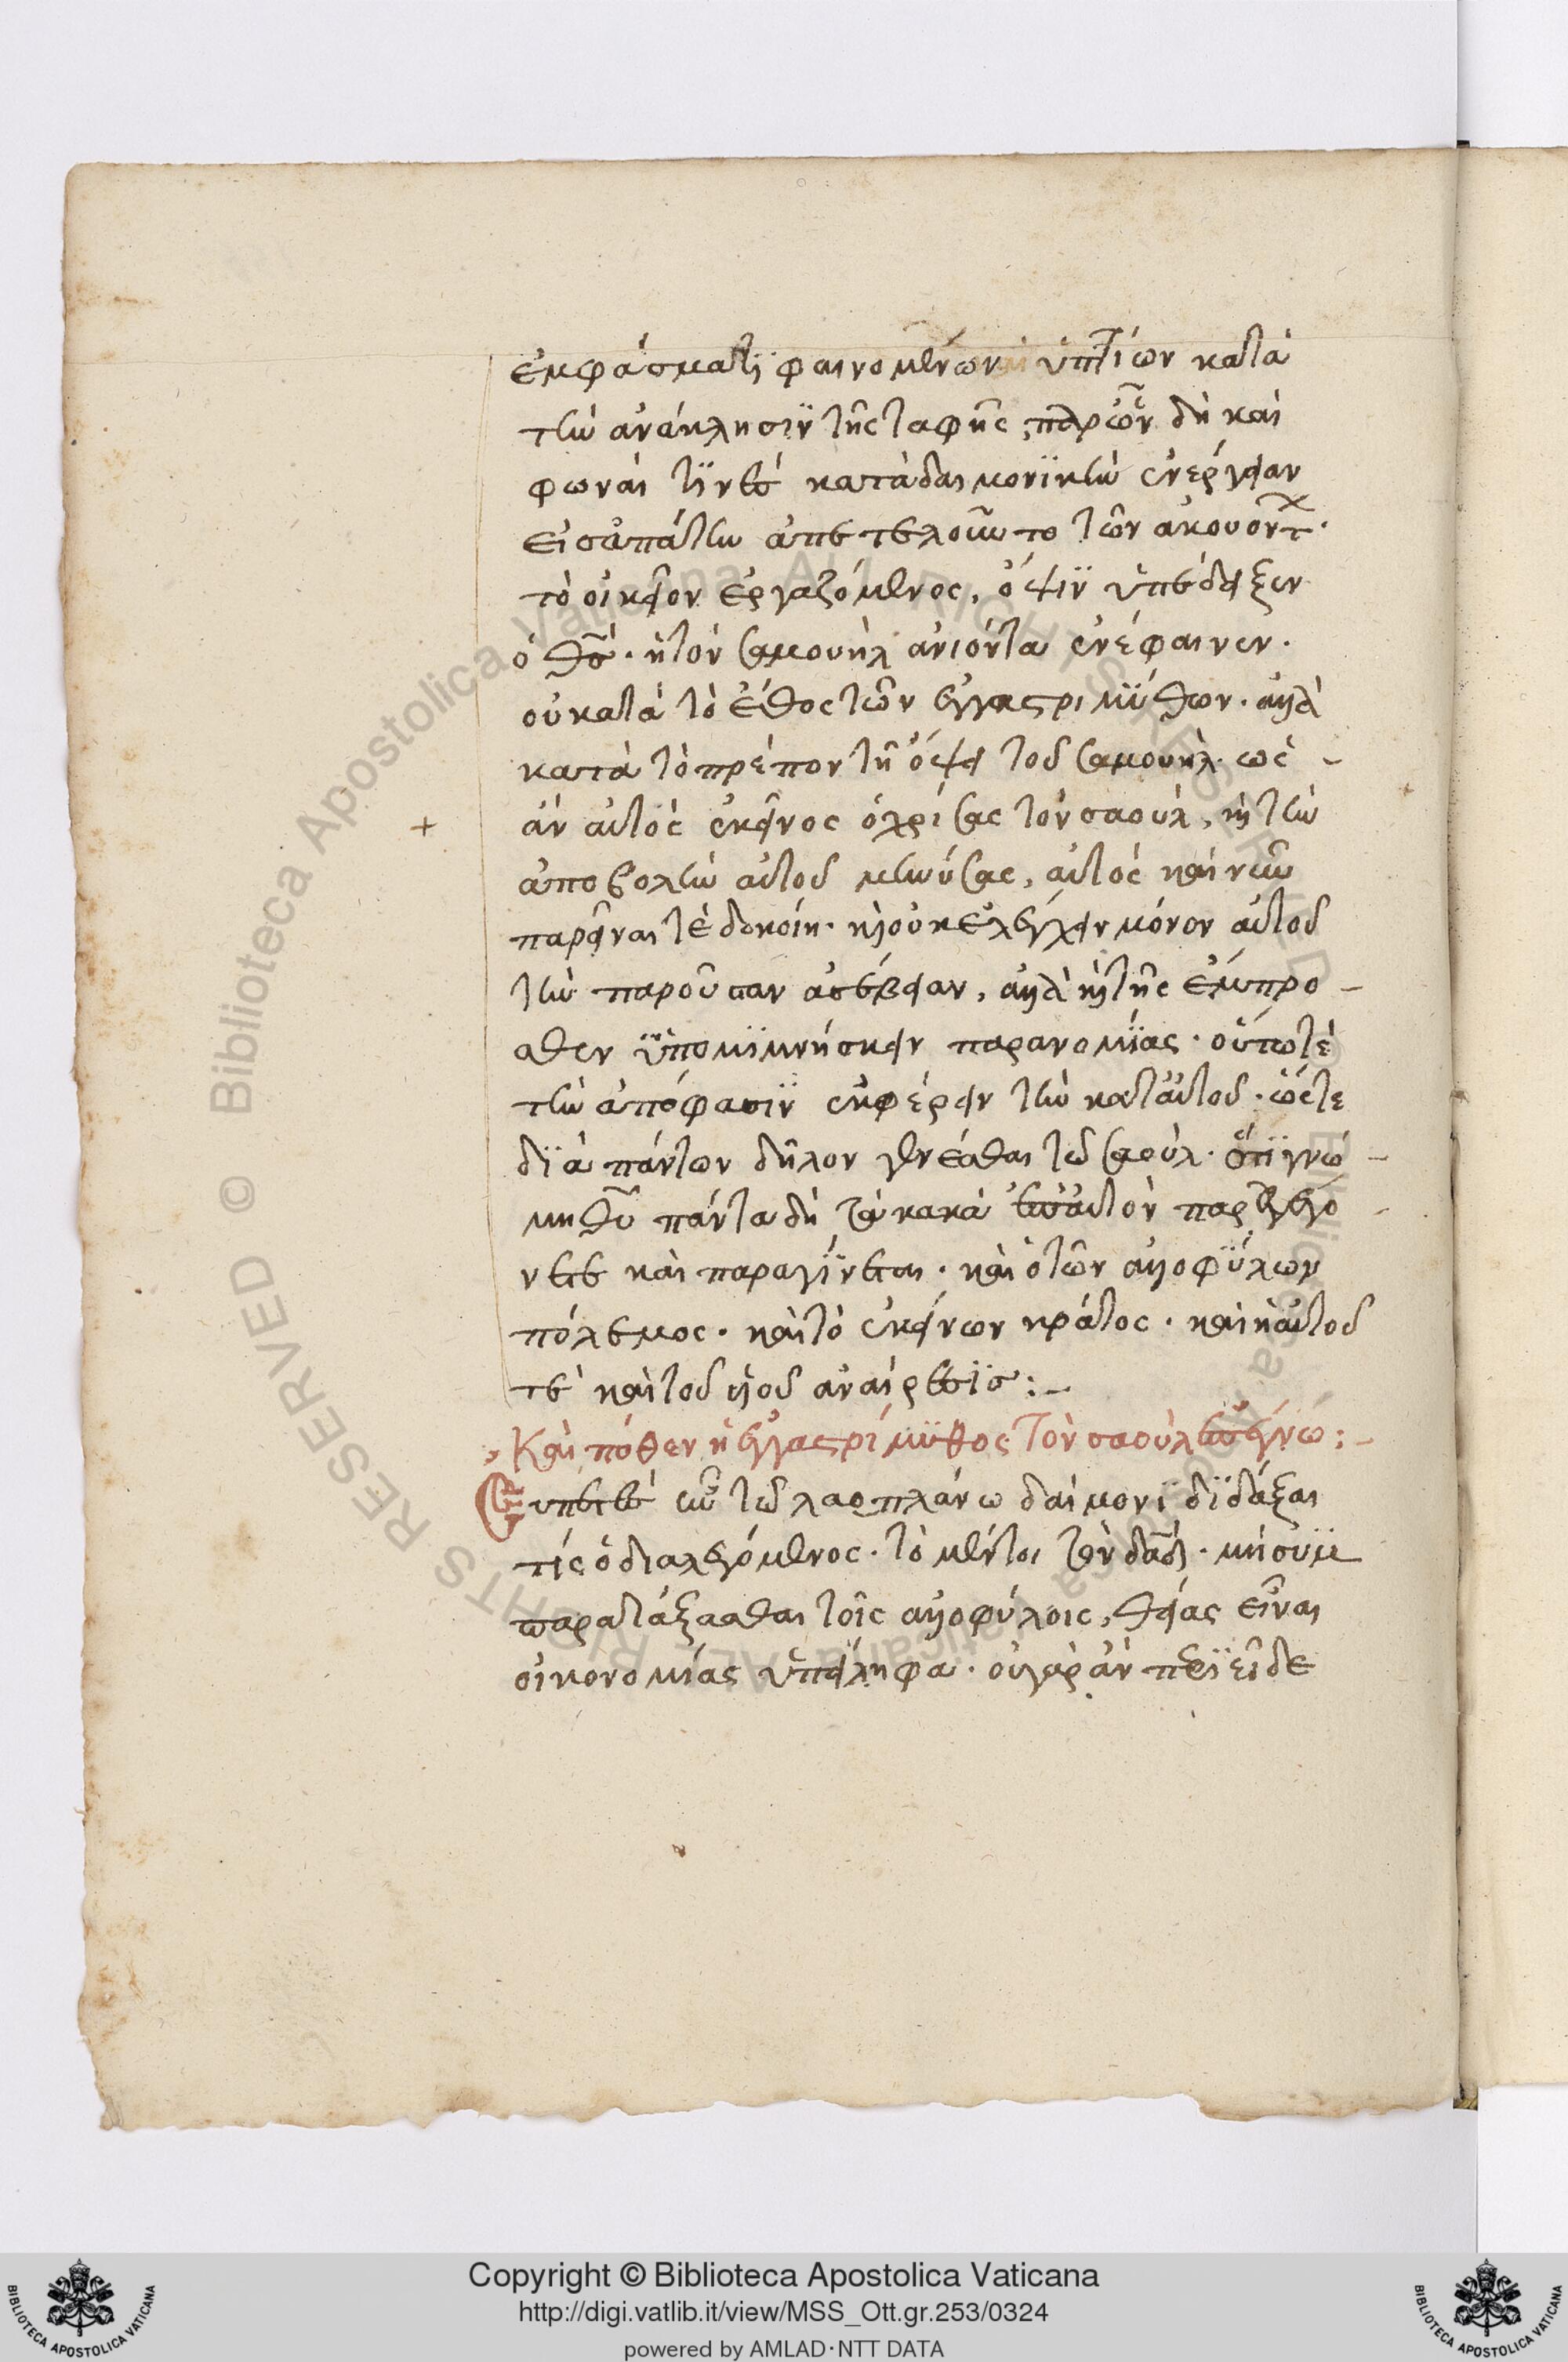 ἐμφάσματϊ φαινομένων ὑπτίων κατὰ
τὴν ἀνάκλησιν τῆς ταφῆς, παρῶν δὴ καὶ
φωναὶ τϊνὲς κατὰ δαιμονϊκὴν ἐνέργειαν
εἰς ἀπάτην ἀπετελοῦντο τῶν ἀκουόντ.
τὸ οἰκεῖον ἐργαζόμενος, ὄψϊν ὑπέδειξεν
ὁ θς̄. ἢ τὸν σαμουὴλ ἀνιόντα ἐνέφαινεν.
οὐ κατὰ τὸ ἔθος τῶν ἐγγαστριμύθων. ἀλλὰ
κατὰ τὸ πρέπον τῇ ὄψει τοῦ σαμουὴλ. ὡς
ἂν αὐτὸς ἐκεῖνος ὁ χρίσας τὸν σαοὺλ, καὶ τὴν
ἀποβολὴν αὐτοῦ μηνύσας, αὐτὸς καὶ νῦν
παρεῖναι τὲ δοκοίη. καὶ οὐκ ἐλέγχειν μόνον αὐτοῦ
τὴν παροῦσαν ἀσέβειαν, ἀλλὰ καὶ τῆς ἔμπρο
σθεν ὑπομϊμνήσκειν παρανομίας. οὕπωτὲ
τὴν ἀπόφασϊν ἐκφέρειν τὴν κατ αὐτοῦ. ὥστε
δϊὰ πάντων δῆλον γενέσθαι τῷ σαοὺλ. ὅτϊ γνώ
μη θῡ πάντα δὴ τὰ κακὰ ἐπ αὐτὸν παρεγεγό
νετε καὶ παραγίνεται. καὶ ὁ τῶν ἀλλοφύλων
πόλεμος. καὶ τὸ ἐκείνων κράτος. καὶ ἡ αὐτοῦ
τὲ καὶ τοῦ ὑιοῦ ἀναίρεσϊς:
Καὶ πόθεν ἡ ἐγγαστρίμυθος τὸν σαοὺλ ἐπέγνω:
Εἵπετὲς ἦν τῷ λαοπλάνω δαίμονϊ δϊδάξαι
τίς ὁ διαλεγόμενος. τὸ μέντοι τὸν δαδ̄. μὴ συμ
παρατάξασθαι τοῖς ἀλλοφύλοις, θείας εἶναι
οἰκονομίας ὑπείληφα. οὐ γὰρ ἂν περϊεῖδε
Copyright © Biblioteca Apostolica Vaticana
http://digi.vatlib.it/view/MSS_Ott.gr.253/0324
powered by AMLAD·NTT DATA